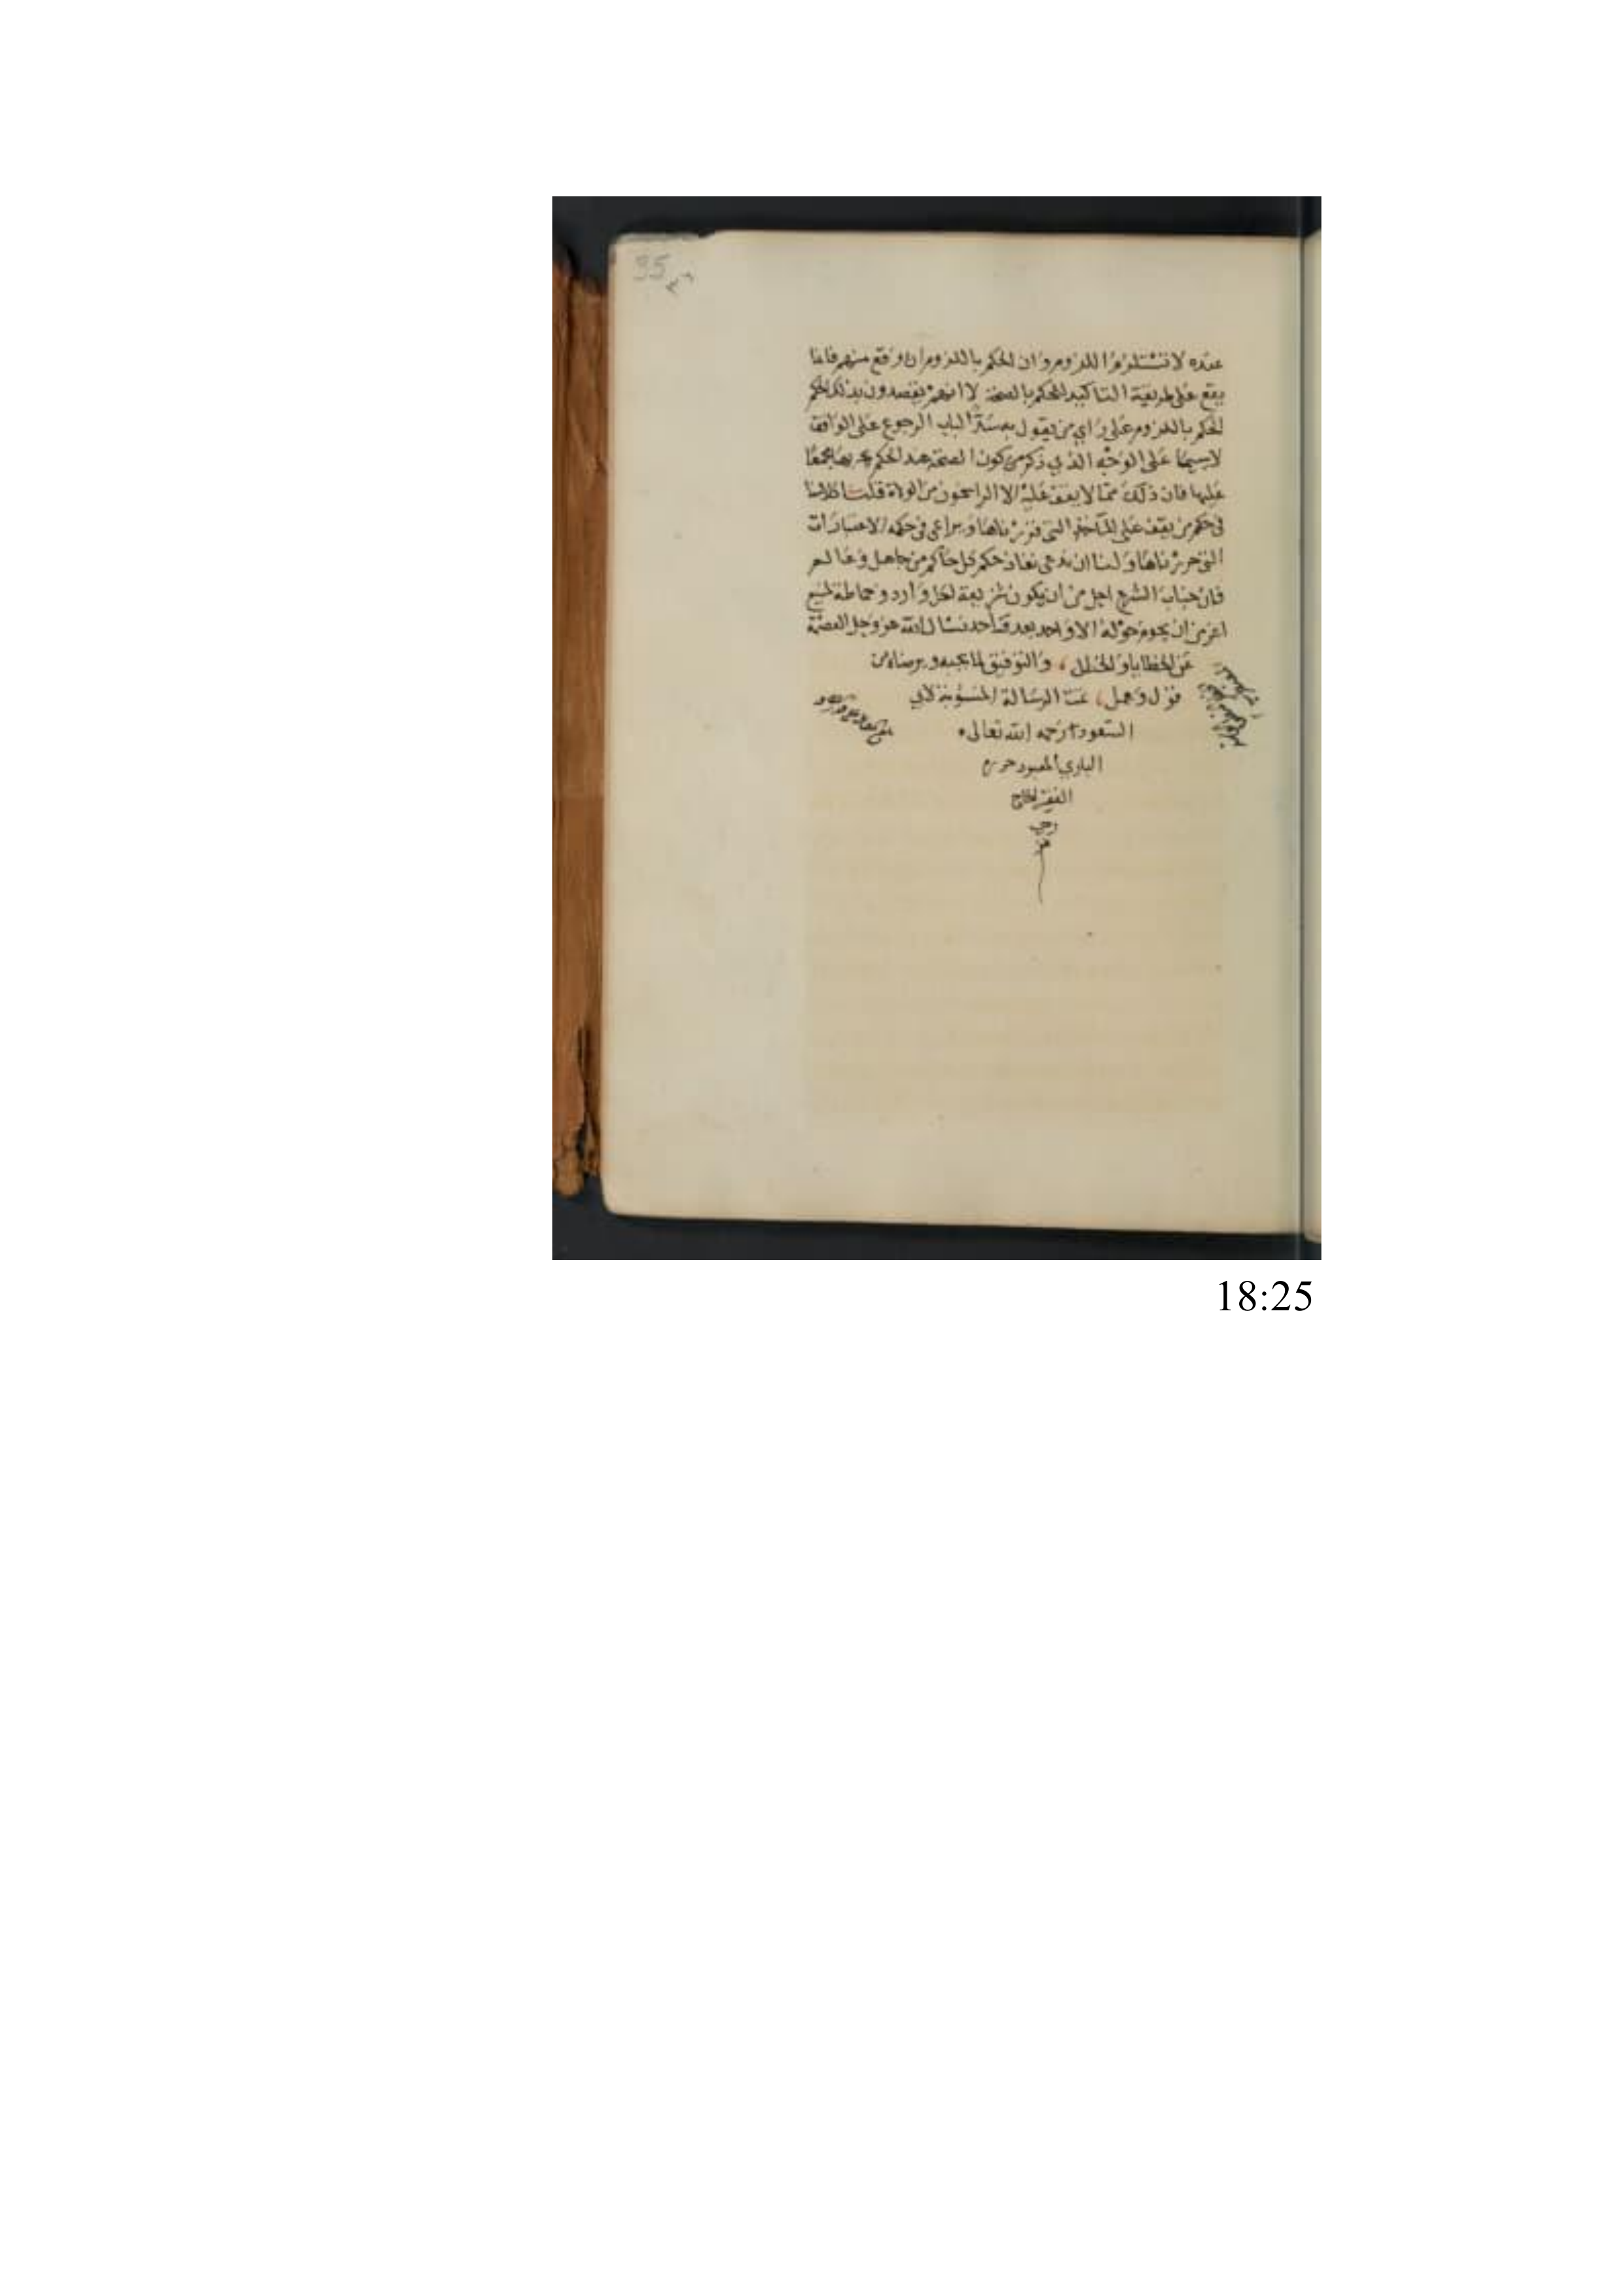 95
عنده لا تستلزم اللزوم وان الحكم باللزوم ان وقع منهم فانما
يقع على طريقة التاكيد للحكم بالصحة لا انهم يقصدون بذلك الحكم
الحكم باللزوم على راي من يقول به سد الباب الرجوع على الواقف
لاسيما على الوجه الذي ذكر من كون الصحة بعد الحكم بها مجمعا
عليها فان ذلك مما لا يقف عليه الا الراسخون من الولاة قلت كلامنا
في حكم من يقف على المآخذ التي قررناها ويراعى في حكمه الاعتبارات
التي حررناها ولنا ان ندعى نفاذ حكم كل حاكم من جاهل وعالم
فان جناب الشرع اجل من ان يكون شريعة لكل وارد و
اعز من ان يحوم حوله الا واحد بعد واحد نسال الله عز وجل العصمة
عن الخطايا والخلل، والتوفيق لما يحبه ويرضاه من
قول وعمل، تمت الرسالة المنسوبة لابي
السعود رحمه الله تعالى
الباري المعبود حرره
الفقير الحاج
رجب
18:25